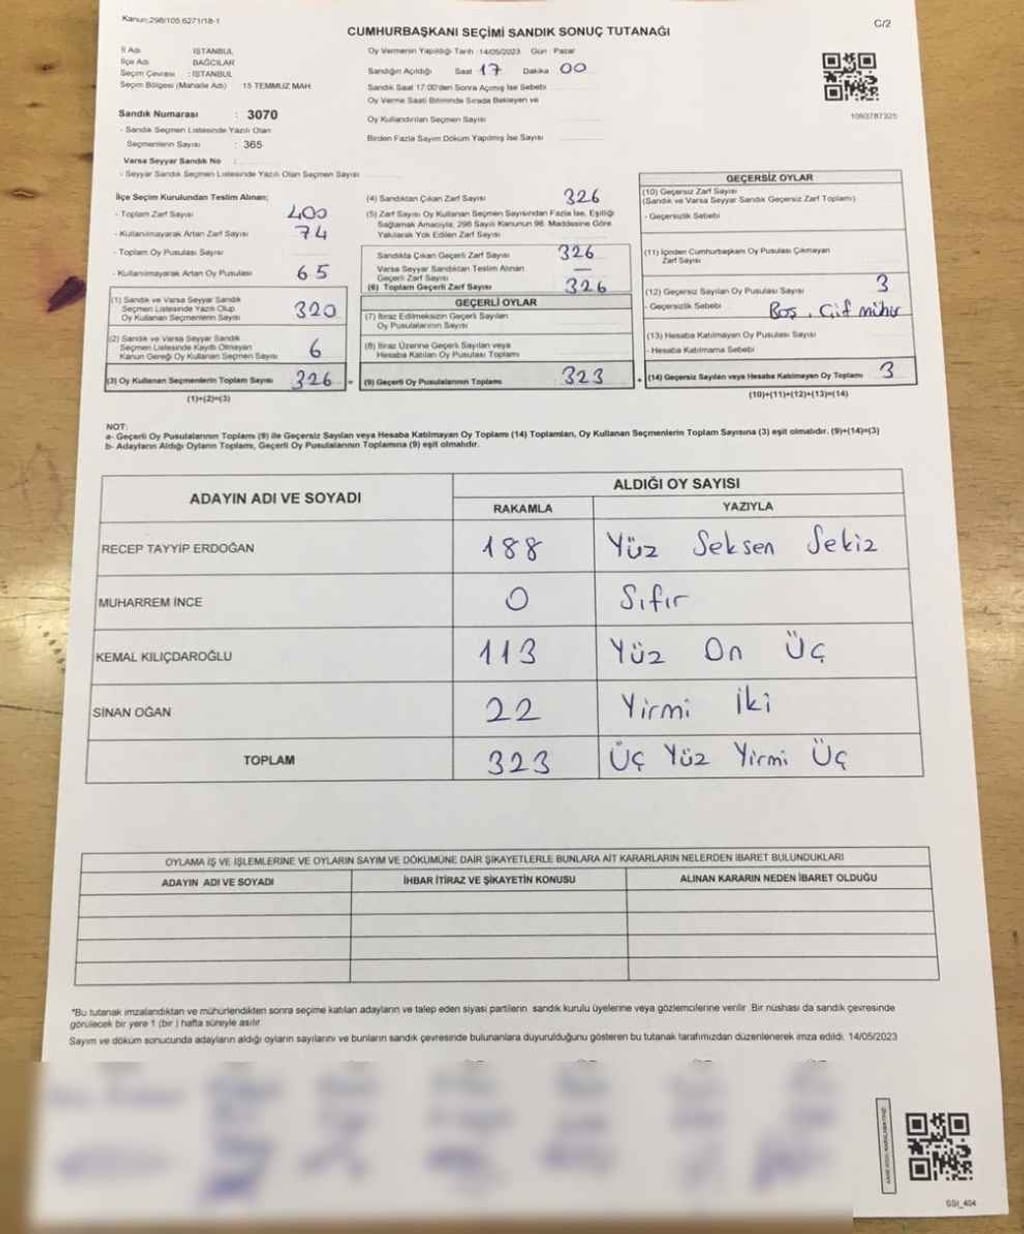 Kanun:298/105 6271/18-1
C/2
CUMHURBAŞKANI SEÇİMİ SANDIK SONUÇ TUTANAĞI
İl Adı İSTANBUL
İlçe Adı BAĞCILAR
Seçim Çevresi : İSTANBUL
Seçim Bölgesi (Mahalle Adı) 15 TEMMUZ MAH.
Oy Vermenin Yapıldığı Tarih :14/05/2023 Gün : Pazar
Sandığın Açıldığı Saat 17 Dakika 00
Sandık Saat 17:00'den Sonra Açılmış İse Sebebi
Oy Verme Saati Bitiminde Sırada Bekleyen ve
Oy Kullandırılan Seçmen Sayısı
Birden Fazla Sayım Döküm Yapılmış İse Sayısı
Sandık Numarası : 3070
- Sandık Seçmen Listesinde Yazılı Olan
Seçmenlerin Sayısı : 365
Varsa Seyyar Sandık No :
- Seyyar Sandık Seçmen Listesinde Yazılı Olan Seçmen Sayısı
1093787325
İlçe Seçim Kurulundan Teslim Alınan;
- Toplam Zarf Sayısı 400
- Kullanılmayarak Artan Zarf Sayısı 74
- Toplam Oy Pusulası Sayısı
- Kullanılmayarak Artan Oy Pusulası 65
(1) Sandık ve Varsa Seyyar Sandık
Seçmen Listesinde Yazılı Olup
Oy Kullanan Seçmenlerin Sayısı 320
(2) Sandık ve Varsa Seyyar Sandık
Seçmen Listesinde Kayıtlı Olmayan
Kanun Gereği Oy Kullanan Seçmen Sayısı 6
(3) Oy Kullanan Seçmenlerin Toplam Sayısı 326
(1)+(2)=(3)
(4) Sandıktan Çıkan Zarf Sayısı 326
(5) Zarf Sayısı Oy Kullanan Seçmen Sayısından Fazla İse, Eşitliği
Sağlamak Amacıyla, 298 Sayılı Kanunun 98. Maddesine Göre
Yakılarak Yok Edilen Zarf Sayısı
Sandıkta Çıkan Geçerli Zarf Sayısı 326
Varsa Seyyar Sandıktan Teslim Alınan
Geçerli Zarf Sayısı —
(6) Toplam Geçerli Zarf Sayısı 326
GEÇERLİ OYLAR
(7) İtiraz Edilmeksizin Geçerli Sayılan
Oy Pusulalarının Sayısı
(8) İtiraz Üzerine Geçerli Sayılan veya
Hesaba Katılan Oy Pusulası Toplamı
= (9) Geçerli Oy Pusulalarının Toplamı 323
GEÇERSİZ OYLAR
(10) Geçersiz Zarf Sayısı
(Sandık ve Varsa Seyyar Sandık Geçersiz Zarf Toplamı)
- Geçersizlik Sebebi
(11) İçinden Cumhurbaşkanı Oy Pusulası Çıkmayan
Zarf Sayısı
(12) Geçersiz Sayılan Oy Pusulası Sayısı 3
- Geçersizlik Sebebi Boş, Çift mühür
(13) Hesaba Katılmayan Oy Pusulası Sayısı
- Hesaba Katılmama Sebebi
+ (14) Geçersiz Sayılan veya Hesaba Katılmayan Oy Toplamı 3
(10)+(11)+(12)+(13)=(14)
NOT:
a- Geçerli Oy Pusulalarının Toplamı (9) ile Geçersiz Sayılan veya Hesaba Katılmayan Oy Toplamı (14) Toplamları, Oy Kullanan Seçmenlerin Toplam Sayısına (3) eşit olmalıdır. (9)+(14)=(3)
b- Adayların Aldığı Oyların Toplamı, Geçerli Oy Pusulalarının Toplamına (9) eşit olmalıdır.
ADAYIN ADI VE SOYADI ALDIĞI OY SAYISI
RAKAMLA YAZIYLA
RECEP TAYYİP ERDOĞAN 188 Yüz Seksen Sekiz
MUHARREM İNCE 0 Sıfır
KEMAL KILIÇDAROĞLU 113 Yüz On Üç
SİNAN OĞAN 22 Yirmi İki
TOPLAM 323 Üç Yüz Yirmi Üç
OYLAMA İŞ VE İŞLEMLERİNE VE OYLARIN SAYIM VE DÖKÜMÜNE DAİR ŞİKAYETLERLE BUNLARA AİT KARARLARIN NELERDEN İBARET BULUNDUKLARI
ADAYIN ADI VE SOYADI İHBAR İTİRAZ VE ŞİKAYETİN KONUSU ALINAN KARARIN NEDEN İBARET OLDUĞU
*Bu tutanak imzalandıktan ve mühürlendikten sonra seçime katılan adayların ve talep eden siyasi partilerin sandık kurulu üyelerine veya gözlemcilerine verilir. Bir nüshası da sandık çevresinde
görülecek bir yere 1 (bir ) hafta süreyle asılır.
Sayım ve döküm sonucunda adayların aldığı oyların sayılarını ve bunların sandık çevresinde bulunanlara duyurulduğunu gösteren bu tutanak tarafımızdan düzenlenerek imza edildi. 14/05/2023